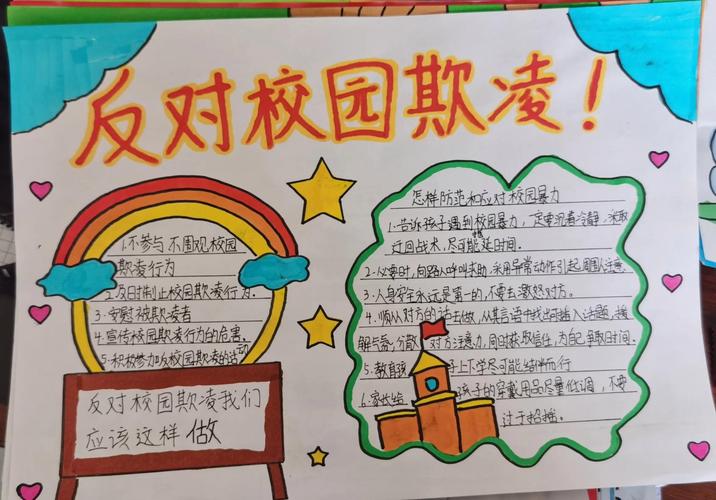 反对校园欺凌！
1.不参与 不围观校园
欺凌行为
2.及时制止校园欺凌行为.
3.安慰被欺凌者
4.宣传校园欺凌行为的危害.
5.积极参加反校园欺凌的活动
反对校园欺凌我们
应该这样做
怎样防范和应对校园暴力
1.告诉孩子遇到校园暴力，一定要沉着冷静.采取
迂回战术，尽可能拖延时间.
2.必要时，向路人呼叫求助，采用异常动作引起周围人注意.
3.人身安全永远是第一的，不要去激怒对方.
4.顺从对方的话去做，从其言语中找出可插入话题，缓
解气氛，分散对方注意力，同时获取信任，为自己争取时间.
5.教育孩子上下学尽可能结伴而行
6.家长给孩子的穿戴用品尽量低调，不要
过于招摇。